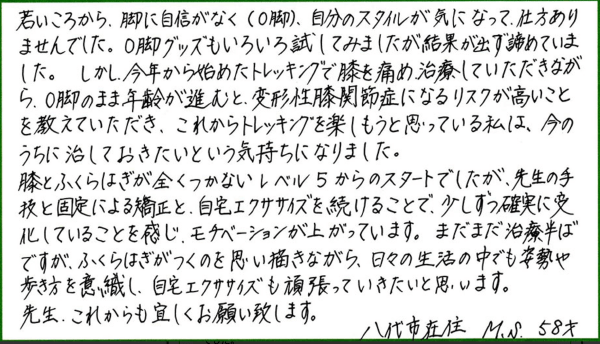 若いころから、脚に自信がなく(O脚)、自分のスタイルが気になって、仕方あり
ませんでした。O脚グッズもいろいろ試してみましたが結果が出ず諦めていま
した。しかし、今年から始めたトレッキングで膝を痛め、治療していただきなが
ら、O脚のまま年齢が進むと、変形性膝関節症になるリスクが高いこと
を教えていただき、これからトレッキングを楽しもうと思っている私は、今の
うちに治しておきたいという気持ちになりました。
膝とふくらはぎが全くつかないレベル5からのスタートでしたが、先生の手
技と固定による矯正と、自宅エクササイズを続けることで、少しずつ確実に変
化していることを感じ、モチベーションが上がっています。まだまだ治療半ば
ですが、ふくらはぎがつくのを思い描きながら、日々の生活の中でも姿勢や
歩き方を意識し、自宅エクササイズも頑張っていきたいと思います。
先生、これからも宜しくお願い致します。
八代市在住 M.S. 58才